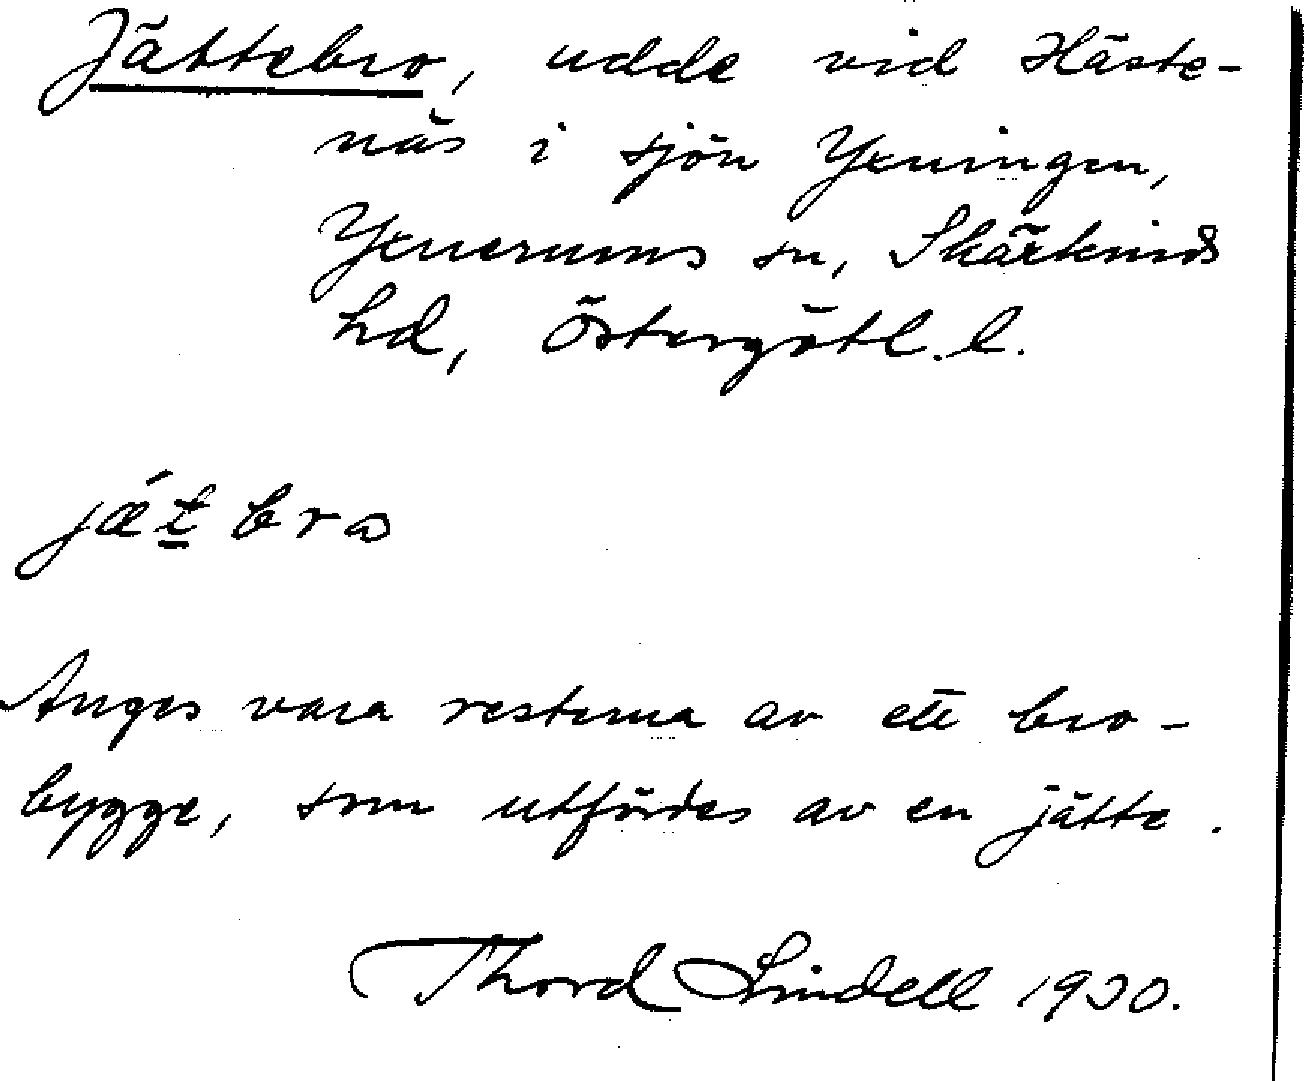 Jättebro, udde vid Häste-
näs i sjön Yxningen,
Yxnerums sn, Skärkinds
hd, Östergötl. l.
jǽt̲ bro
Anges vara resterna av ett bro-
bygge, som utfördes av en jätte.
Thord Lindell 1930.